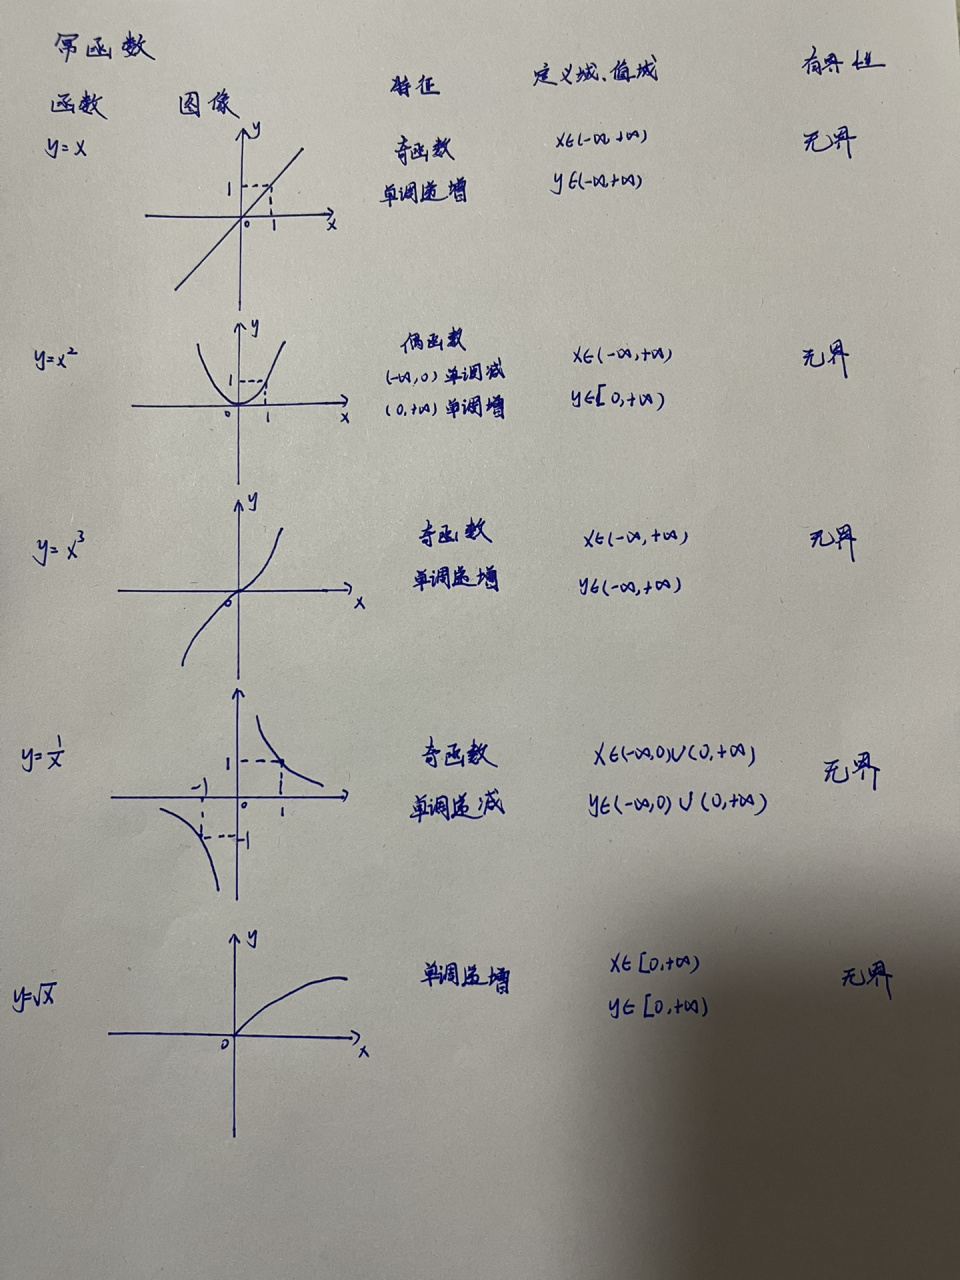 幂函数
函数 图像 特征 定义域、值域 有界性
y=x
y
1
0
1
x
奇函数
单调递增
x∈(-∞,+∞)
y∈(-∞,+∞)
无界
y=x²
y
1
0
1
x
偶函数
(-∞,0) 单调减
(0,+∞) 单调增
x∈(-∞,+∞)
y∈[0,+∞)
无界
y=x³
y
0
x
奇函数
单调递增
x∈(-∞,+∞)
y∈(-∞,+∞)
无界
y=1/x
1
-1
0
1
-1
奇函数
单调递减
x∈(-∞,0)∪(0,+∞)
y∈(-∞,0)∪(0,+∞)
无界
y=√x
y
0
x
单调递增
x∈[0,+∞)
y∈[0,+∞)
无界